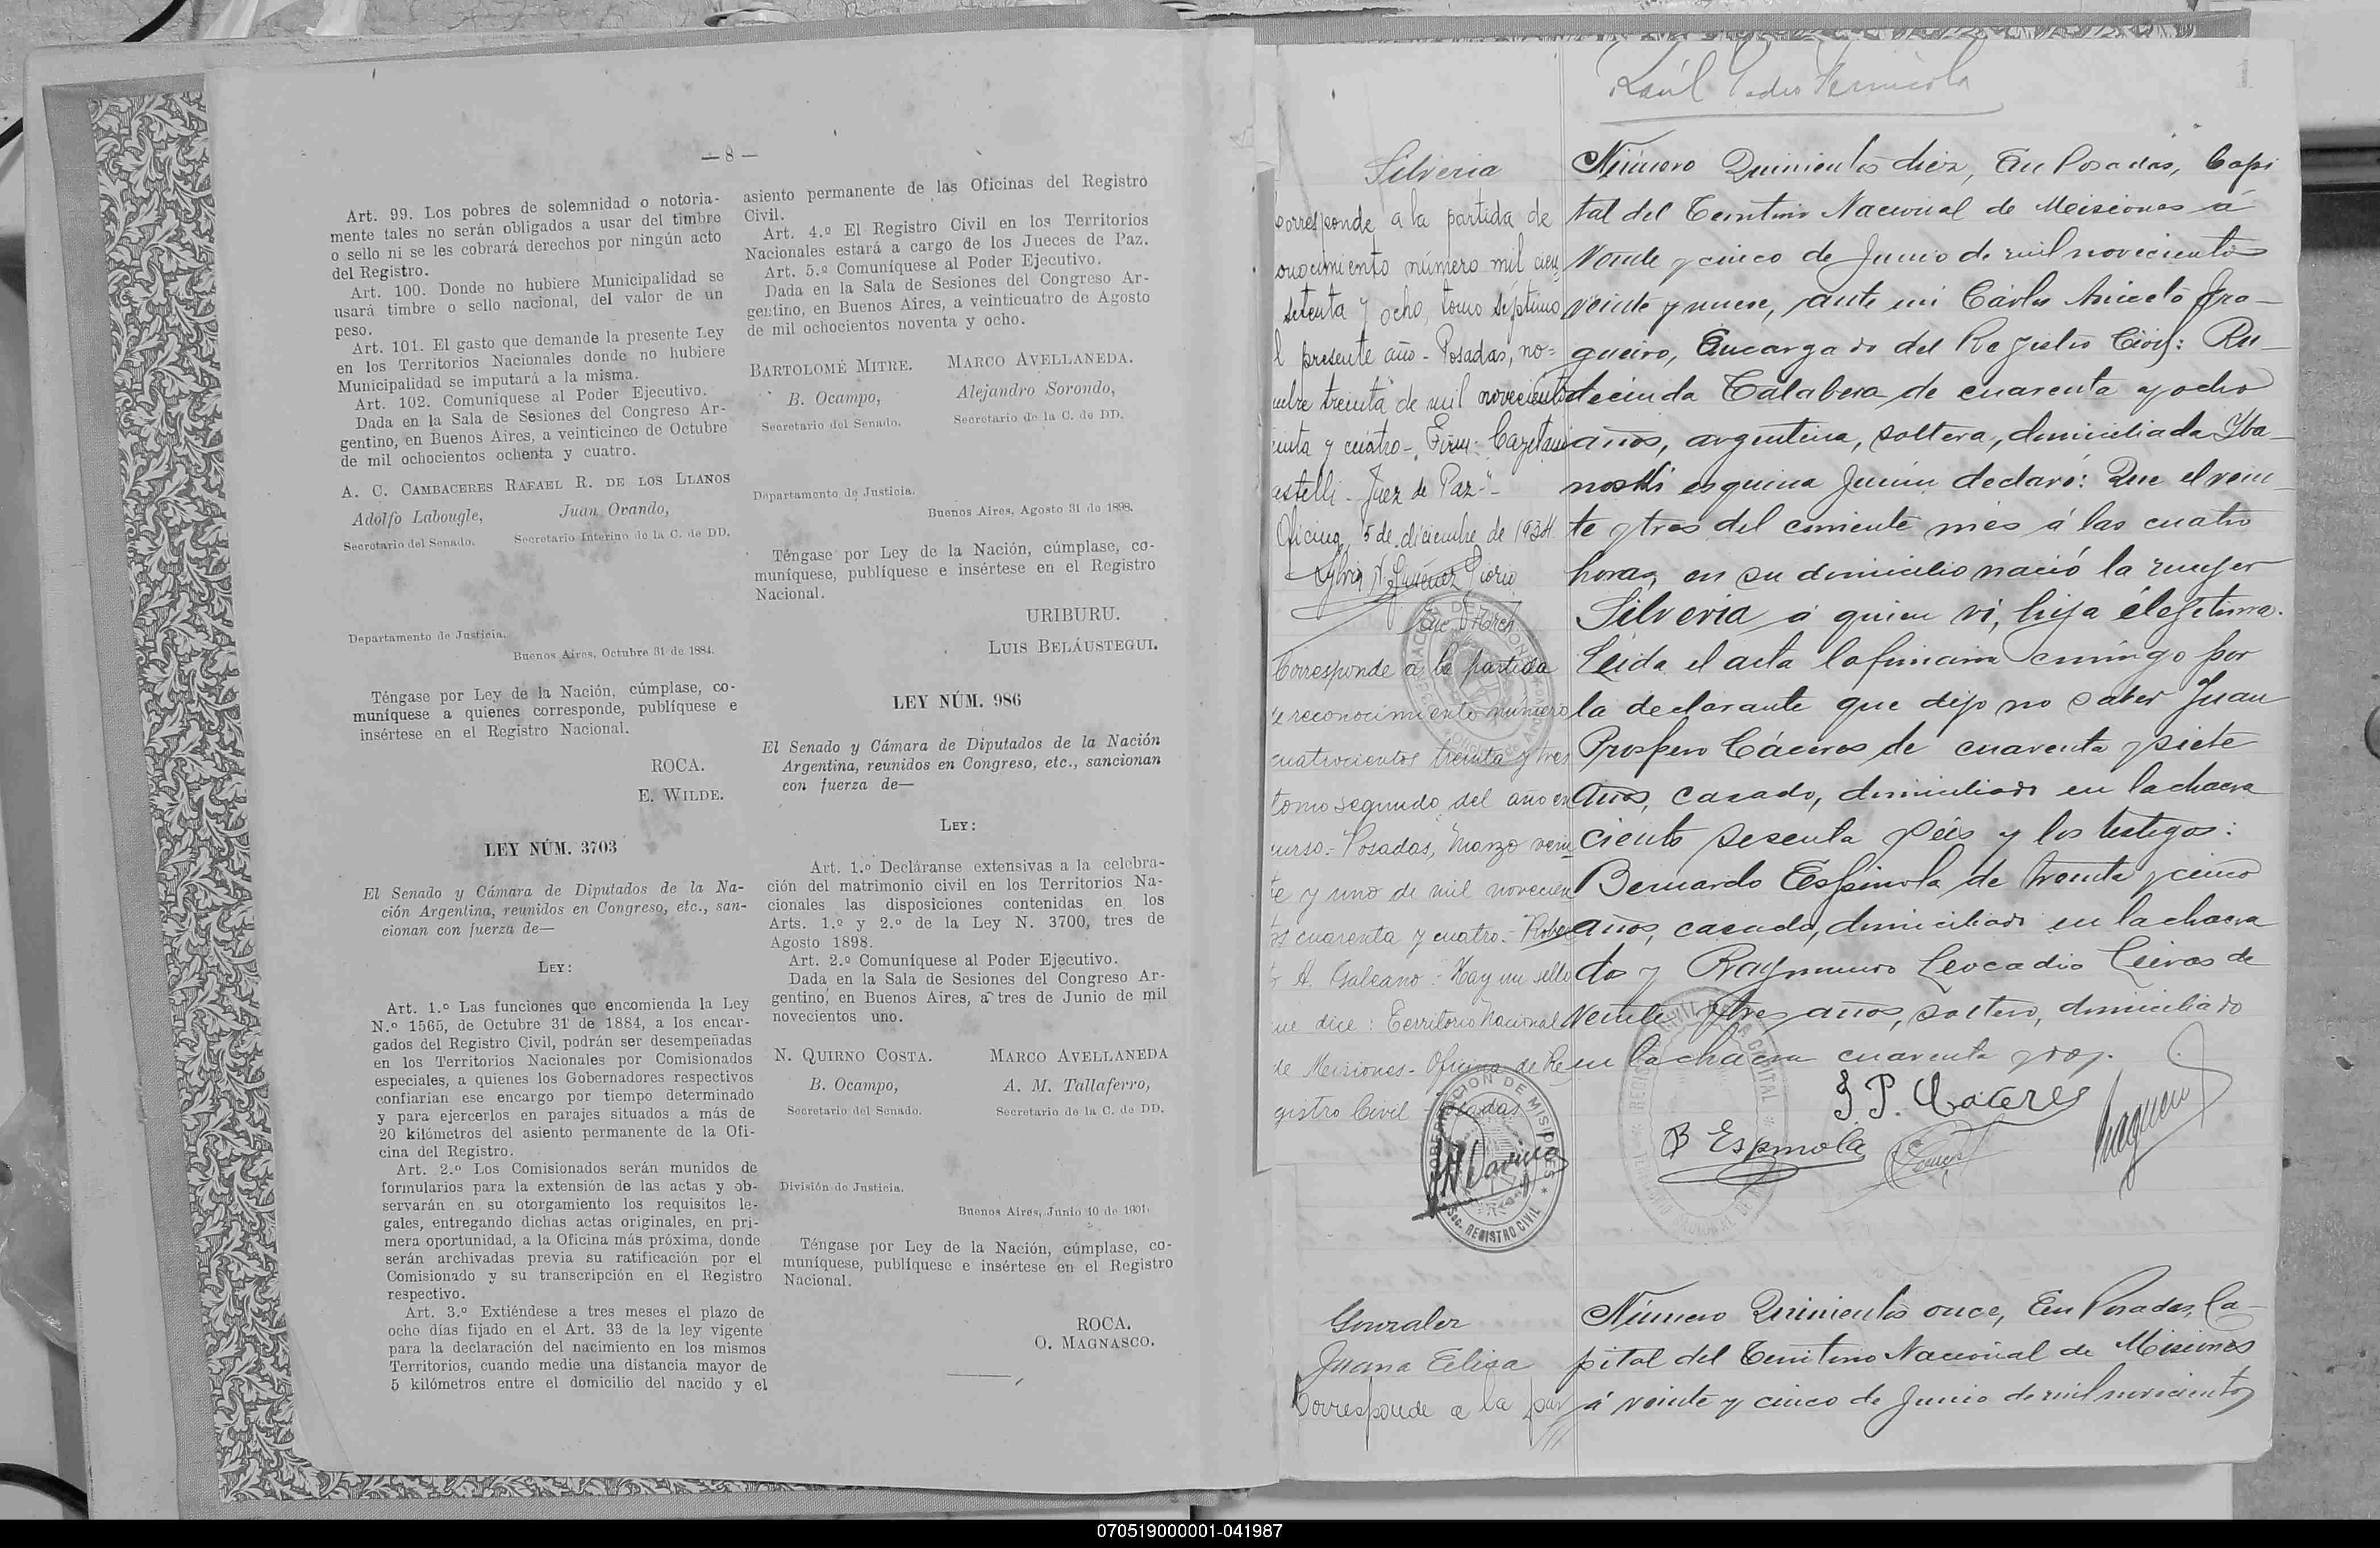 — 8 —
Art. 99. Los pobres de solemnidad o notoria-
mente tales no serán obligados a usar del timbre
o sello ni se les cobrará derechos por ningún acto
del Registro.
Art. 100. Donde no hubiere Municipalidad se
usará timbre o sello nacional, del valor de un
peso.
Art. 101. El gasto que demande la presente Ley
en los Territorios Nacionales donde no hubiere
Municipalidad se imputará a la misma.
Art. 102. Comuníquese al Poder Ejecutivo.
Dada en la Sala de Sesiones del Congreso Ar-
gentino, en Buenos Aires, a veinticinco de Octubre
de mil ochocientos ochenta y cuatro.
A. C. CAMBACERES RAFAEL R. DE LOS LLANOS
Adolfo Labougle, Juan Ovando,
Secretario del Senado. Secretario Interino de la C. de DD.
Departamento de Justicia.
Buenos Aires, Octubre 31 de 1884.
Téngase por Ley de la Nación, cúmplase, co-
muníquese a quienes corresponde, publíquese e
insértese en el Registro Nacional.
ROCA.
E. WILDE.
LEY NÚM. 3703
El Senado y Cámara de Diputados de la Na-
ción Argentina, reunidos en Congreso, etc., san-
cionan con fuerza de—
LEY:
Art. 1.º Las funciones que encomienda la Ley
N.º 1565, de Octubre 31 de 1884, a los encar-
gados del Registro Civil, podrán ser desempeñadas
en los Territorios Nacionales por Comisionados
especiales, a quienes los Gobernadores respectivos
confiarían ese encargo por tiempo determinado
y para ejercerlos en parajes situados a más de
20 kilómetros del asiento permanente de la Ofi-
cina del Registro.
Art. 2.º Los Comisionados serán munidos de
formularios para la extensión de las actas y ob-
servarán en su otorgamiento los requisitos le-
gales, entregando dichas actas originales, en pri-
mera oportunidad, a la Oficina más próxima, donde
serán archivadas previa su ratificación por el
Comisionado y su transcripción en el Registro
respectivo.
Art. 3.º Extiéndese a tres meses el plazo de
ocho días fijado en el Art. 33 de la ley vigente
para la declaración del nacimiento en los mismos
Territorios, cuando medie una distancia mayor de
5 kilómetros entre el domicilio del nacido y el
asiento permanente de las Oficinas del Registro
Civil.
Art. 4.º El Registro Civil en los Territorios
Nacionales estará a cargo de los Jueces de Paz.
Art. 5.º Comuníquese al Poder Ejecutivo.
Dada en la Sala de Sesiones del Congreso Ar-
gentino, en Buenos Aires, a veinticuatro de Agosto
de mil ochocientos noventa y ocho.
BARTOLOMÉ MITRE. MARCO AVELLANEDA.
B. Ocampo, Alejandro Sorondo,
Secretario del Senado. Secretario de la C. de DD.
Departamento de Justicia.
Buenos Aires, Agosto 31 de 1898.
Téngase por Ley de la Nación, cúmplase, co-
muníquese, publíquese e insértese en el Registro
Nacional.
URIBURU.
LUIS BELÁUSTEGUI.
LEY NÚM. 986
El Senado y Cámara de Diputados de la Nación
Argentina, reunidos en Congreso, etc., sancionan
con fuerza de—
LEY:
Art. 1.º Decláranse extensivas a la celebra-
ción del matrimonio civil en los Territorios Na-
cionales las disposiciones contenidas en los
Arts. 1.º y 2.º de la Ley N. 3700, tres de
Agosto 1898.
Art. 2.º Comuníquese al Poder Ejecutivo.
Dada en la Sala de Sesiones del Congreso Ar-
gentino, en Buenos Aires, a tres de Junio de mil
novecientos uno.
N. QUIRNO COSTA. MARCO AVELLANEDA
B. Ocampo, A. M. Tallaferro,
Secretario del Senado. Secretario de la C. de DD.
División de Justicia.
Buenos Aires, Junio 10 de 1901.
Téngase por Ley de la Nación, cúmplase, co-
muníquese, publíquese e insértese en el Registro
Nacional.
ROCA.
O. MAGNASCO.
Raúl Pedro
Silveria
Corresponde a la partida de
onocimiento número mil cien
setenta y ocho, tomo séptimo
l presente año - Posadas, no=
mbre treinta de mil novecientos
inta y cuatro -
astelli - Juez de Paz"-
Oficina, 5 de diciembre de 1934.
Corresponde a la partida
e reconocimiento número
cuatrocientos treinta y tres
tomo segundo del año en
curso.- Posadas, Marzo vein
te y uno de mil novecien
tos cuarenta y cuatro.- Rober
to A. Galeano - Hay un sello
que dice: Territorio Nacional
de Misiones - Oficina de Re
gistro Civil - Posadas
GOBERNACION DE MISIONES
Sec. REGISTRO CIVIL
Número Quinientos diez, En Posadas, Capi
tal del Territorio Nacional de Misiones á
veinte y cinco de Junio de mil novecientos
veinte y nueve, ante mi Cárlos Aniceto Fra-
gueiro, Encargado del Registro Civil: Ru-
decinda Talabera de cuarenta y ocho
años, argentina, soltera, domiciliada Yba-
noski esquina Junin declaró: Que el vein-
te y tres del corriente mes á las cuatro
horas, en su domicilio nació la mujer
Silveria á quien ví, hija ilegítima.
Leida el acta la firmaron conmigo por
la declarante que dijo no saber Juan
Prospero Cáceres de cuarenta y siete
años, casado, domiciliado en la chacra
ciento sesenta y séis y los testigos:
Bernardo Espinola de treinta y cinco
años, casado, domiciliado en la chacra
dos y Raymundo Leocadio Leivas de
veinte y tres años, soltero, domiciliado
en la chacra cuarenta y dos.
J P. Caceres
B Espinola
Gonzalez
Juana Elisa
Corresponde a la par
Número Quinientos once, En Posadas, Ca-
pital del Territorio Nacional de Misiones
á veinte y cinco de Junio de mil novecientos
070519000001-041987